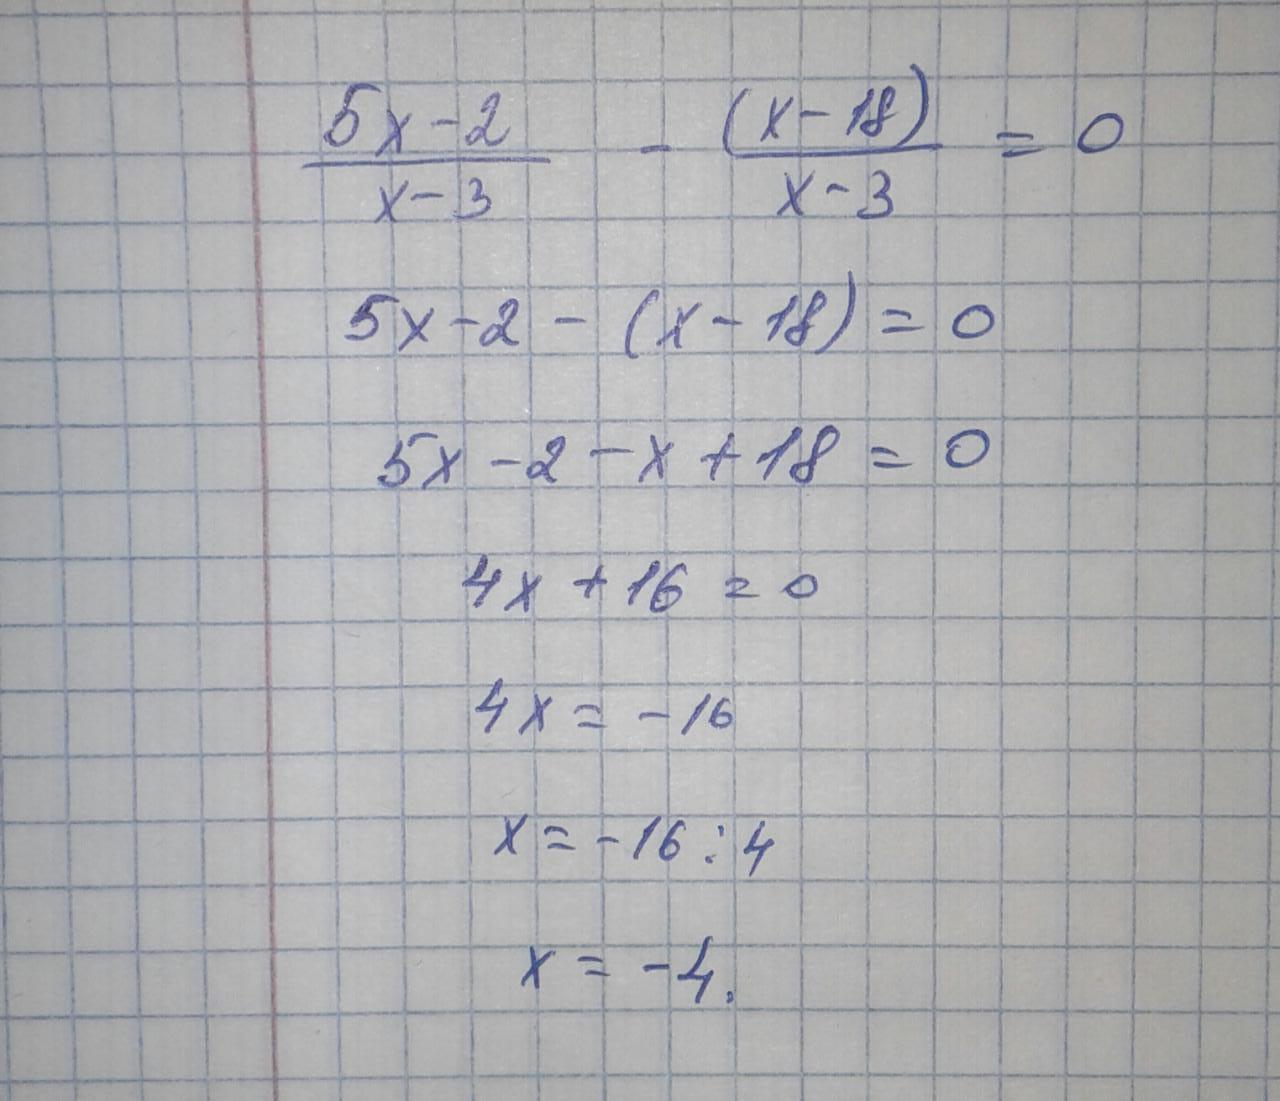 (5x-2)/(x-3) - (x-18)/(x-3) = 0
5x-2 - (x-18) = 0
5x-2-x+18 = 0
4x+16 = 0
4x = -16
x = -16:4
x = -4.